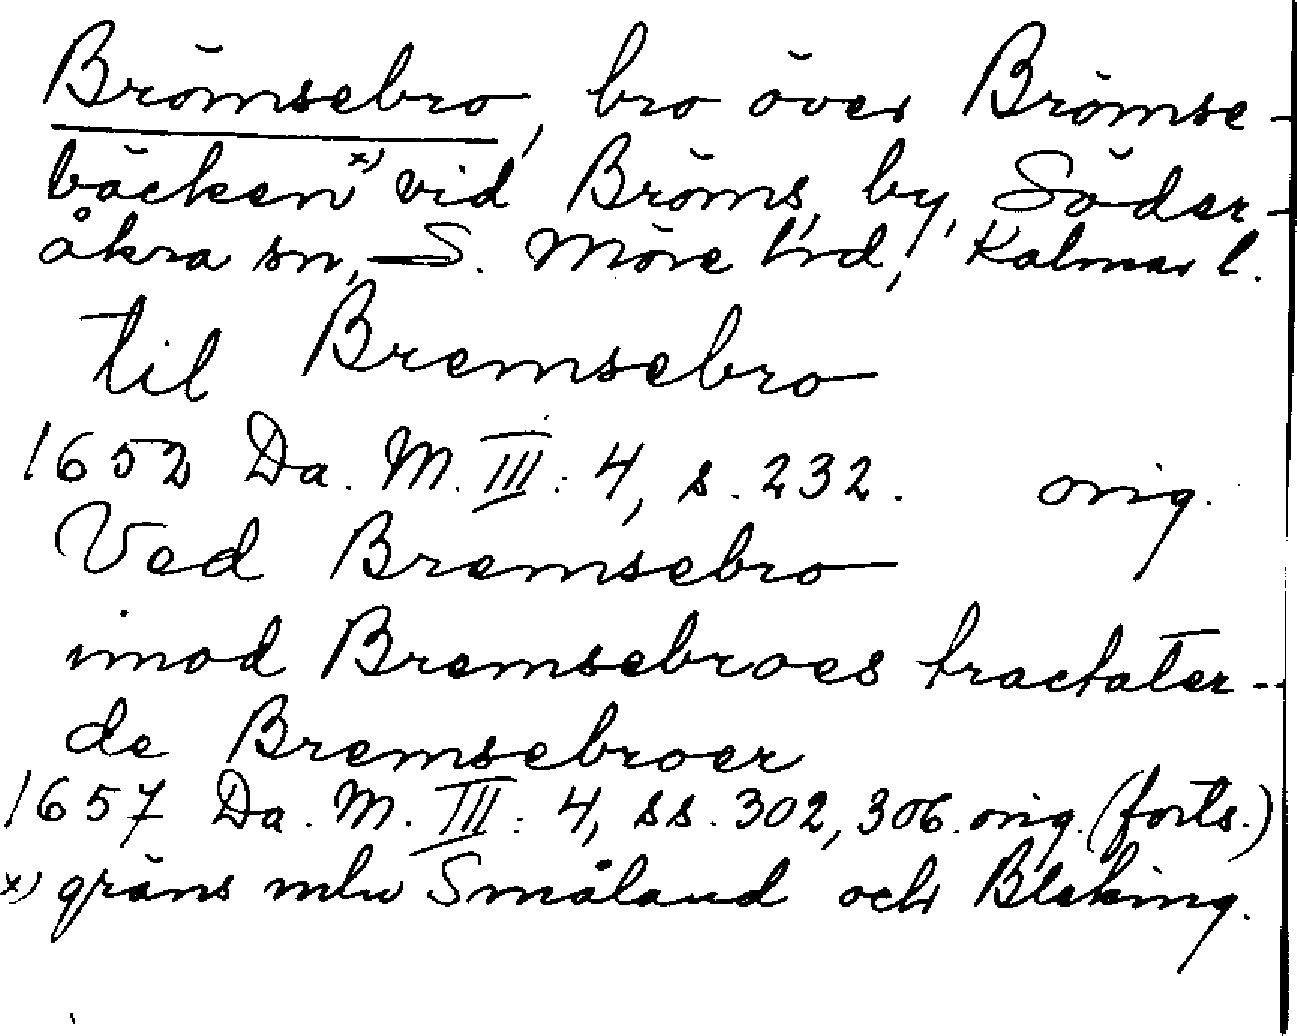 Brömsebro, bro över Brömse-
bäcken x) vid Bröms, by, Söder-
åkra sn, S. Möre hrd, Kalmar l.
til Bremsebro
1652 Da. M. III: 4, s. 232. orig.
Ved Bremsebro
imod Bremsebroes tractater --
de Bremsebroer
1657 Da. M. III: 4, ss. 302, 306. orig. (forts.)
x) gräns mlw Småland och Bleking.